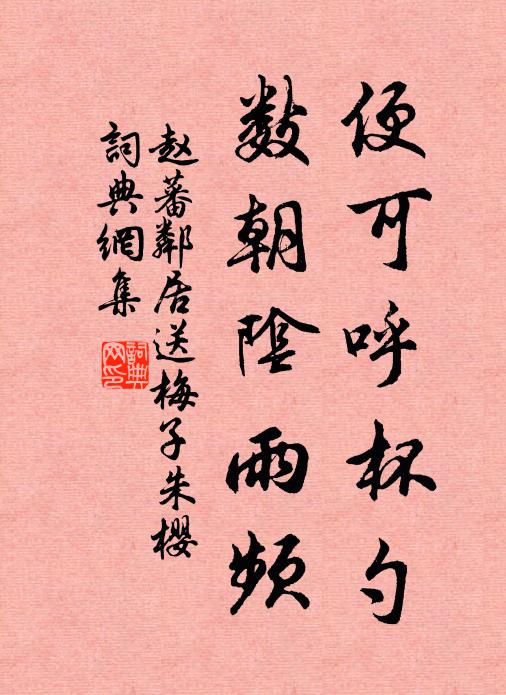 便可呼杯勺
數朝陰雨頻
赵蕃鄰居送梅子朱櫻
詞典網集
詞典
网印